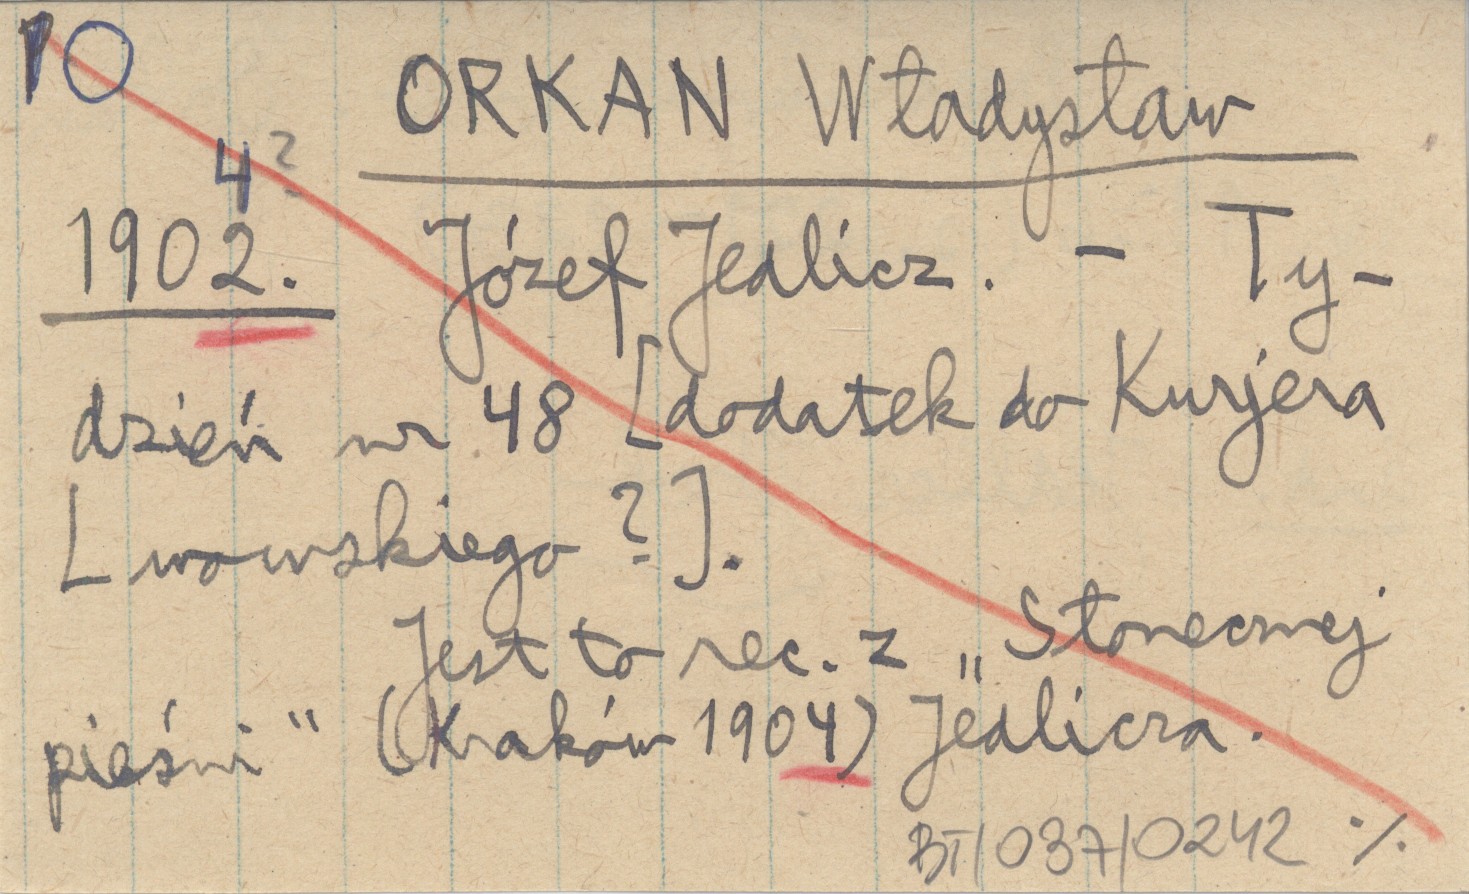 10
ORKAN Władysław
4?
1902. Józef Jedlicz. - Ty-
dzień nr 48 [dodatek do Kurjera
Lwowskiego ?].
Jest to rec. z „Słonecznej
pieśni" (Kraków 1904) Jedlicza.
BT/037/0242 ·/.